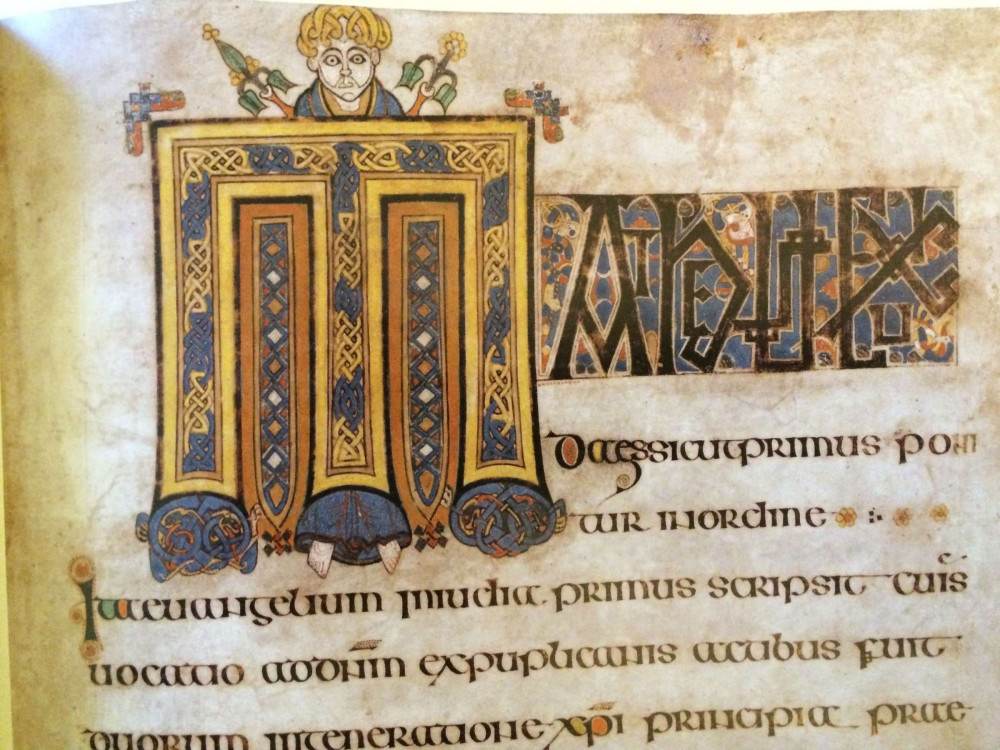 MATHEUS EX IU
daessicutprimus poni
tur inordine
Itaeuangelium Iniudia primus scripsit cuis
uocatio addnm expuplicanis actibus fuit
duorum ingeneratione xpi principia prae